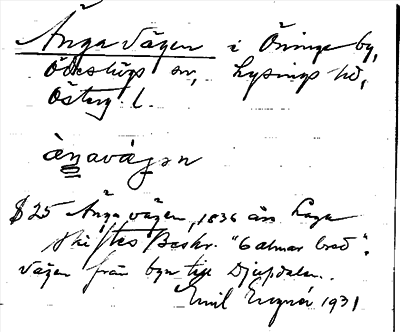 Änga vägen i Öninge by,
Ödeshögs sn, Lysings hd,
Österg. l.
àŋavágən
§ 25 Änga vägen, 1836 års Laga
skiftes Beskr. "6 alnar bred".
Vägen från byn till Djupdalen.
Emil 1931